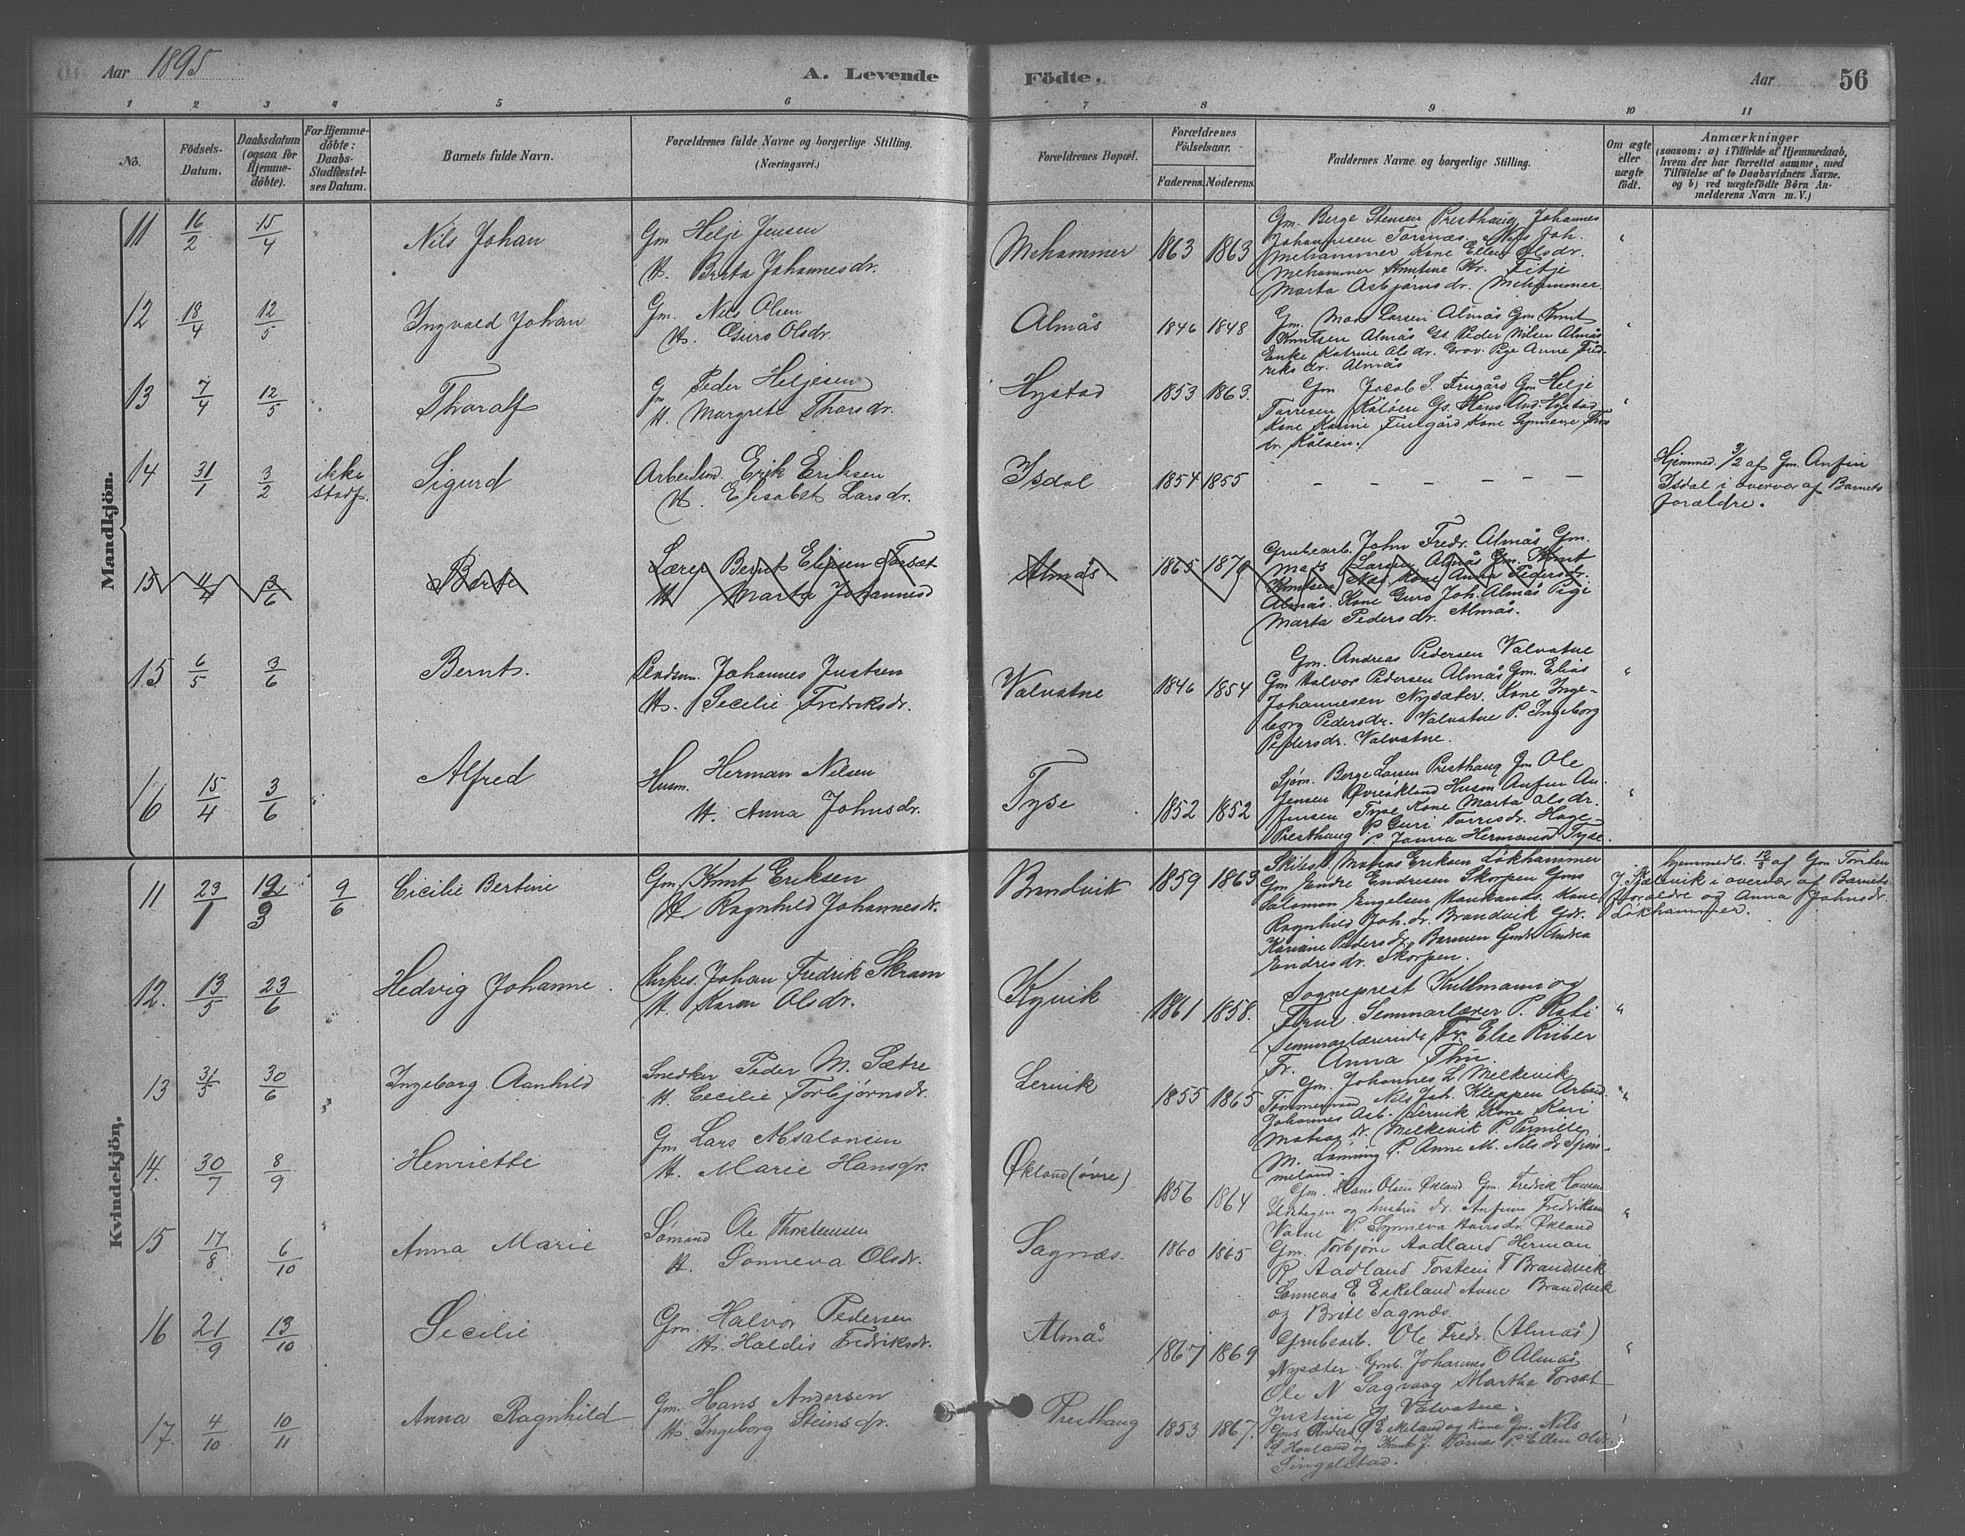 Aar 1895 A. Levende Födte. Aar 56
1 2 3 4 5 6 7 8 9 10 11
No. Födsels-Datum. Daabsdatum (ogsaa for Hjemmedöbte). For Hjemmedöbte: Daabs-Stadfæstelses Datum. Barnets fulde Navn. Forældrenes fulde Navne og borgerlige Stilling. (Næringsvei.) Forældrenes Bopæl. Forældrenes Födselsaar. Faderens. Moderens. Faddernes Navne og borgerlige Stilling. Om ægte eller uægte födt. Anmærkninger (saasom: a) i Tilfælde af Hjemmedaab, hvem der har forrettet samme, med Tilföielse af to Daabsvidners Navne. og b) ved uægtefödte Börn Anmelderens Navn m. V.)
Mandkjön.
11 16/2 15/4 Nils Johan Gm Helje Jensen
H. Brita Johannesdr. Mehammer 1863 1863 Gm. Berge Stensen Presthaug Johannes
Johannesen Torsnæs. Nils Joh.
Mehammer Kone Ellen Olsdr.
Mehammer Knutine Kr. Fitje
Marta Asbjørnsdr. Mehammer.
12 18/4 12/5 Ingvald Johan Gm. Nils Olsen
H. Guro Olsdr. Almås 1846 1848 Gm. Mons Larsen Almås Gm Knut
Knutsen Almås Gs. Peder Nilsen Almås
Enke Katrine Olsdr. Grov. Pige Anne Fred-
riksdr. Almås
13 7/4 12/5 Thoralf G. Peder Heljesen
H. Margrete Thorsdr. Hystad 1853 1863. Gm Jacob S. Frugård Gm Helje
Torresen Kåløen Gs. Hans And. Hystad
Kone Karine Frugård Kone Synneve Thos
dr. Kåløen.
14 31/1 3/2 ikke Stadf. Sigurd Arbeidsm. Erik Eriksen
H. Elisabet Larsdr. Isdal 1854 1855 – – – – – –
Hjemmed. 3/2 af Gm. Anfin
Isdal i overvær af Barnets
forældre.
15 4/4 3/6 Berte Lærer Bernt Eliasen Torsæt
H. Marta Johannesd Almås 1865 1870 Grubearb. John Fredr. Almås Gm.
Mons Larsen Almås Gm. Knut
Knutsen Kone Anna Pedersdr.
Almås. Kone Guro Joh. Almås Pige
Marta Pedersdr. Almås.
15. 6/5 3/6 Bernt. Pladsm. Johannes Justsen
H. Secilie Fredriksdr. Valvatne 1846 1854 Gm. Andreas Pedersen Valvatne
Gm Halvor Pedersen Almås Gm. Elias
Johannesen Nysæter. Kone Inge-
borg Pedersdr. Valvatne P. Ingeborg
Pedersdr. Valvatne.
16 15/4 3/6 Alfred Husm. Herman Nilsen
H. Anna Johnsdr. Tyse 1852 1852 Sjøm. Berge Larsen Presthaug Gm Ole
Jensen Øvreøkland Husm Anfin An-
Jensen Tyse Kone Marta Olsdr.
Presthaug P. Guri Torresdr. Hage-
P. Janna Hermansd Tyse.
Kvindekjön.
11 23/1 12/3 9/6 Cicilie Bertine Gm. Knut Eriksen
H. Ragnhild Johannesdr. Brandvik 1859 1863 Skibest. Matias Eriksen Løkhammer
Gm. Endre Endresen Skorpen Gms
Salomon Engelsen Kone
Ragnhild Joh.dr. Brandvik Gdr.
Kariane Pedersdr. Barmen Gmdr Andrea
Endresdr. Skorpen.
Hjemmedb. 12/3 af Gm. Torsten
J. Skælevik i overvær af Barnets
forældre og Anna Johnsdr.
Løkhammer.
12. 13/5 23/6 Hedvig Johanne. Kirkes. Johan Fredrik Skram
H. Karen Olsdr. Kyvik 1861 1858. Sogneprest Kullmann og
Frue. Seminarlærer P. Rati
Seminarlærerinde Fr. Else Riiber
Fr. Anna Thu.
13 31/5 30/6 Ingeborg Aanhild Snedker Peder M. Sætre
H. Cecilie Torbjørnsdr. Lervik 1855 1865 Gm. Johannes L Melkevik
Tømmermand Nils Joh. Kleppen Arbeid.
Johannes Asb. Lervik Kone Kari
Matiasdr. Melkevik P. Pernille
M. Lønning P. Anne M. Nilsdr. Spis-
meland.
14. 30/7 8/9 Henriette Gm. Lars Absalonsen
H. Marie Hansdr. Økland (øvre) 1856 1864 Gm. Hans Olsen Økland Gm. Fredrik
og hustru Anfinn Fredriksen
Vatne P. Synneva Økland
15 17/8 6/10 Anna Marie Sømand Ole Thorstensen
H. Sonneva Olsdr. Sagnæs. 1860 1865 Gm. Torbjørn Aadland Herman
R Aadland Torstein T Brandvik
Sonneva E Eskeland Anne Brandvik
og Brite Sagnæs
16 21/9 13/10 Secilie Gm. Halvor Pedersen
H. Haldis Fredriksdr. Almås 1867 1869 Grubearb. Ole Fredr. (Almås)
Nysæter. Grub. Johannes O Almås
Ole N Sagvaag Martha Torsæt
Justine J. Valvatne.
17. 4/10 10/11 Anna Ragnhild Gm. Hans Andersen
H. Ingeborg Steinsdr. Presthaug 1853 1867. Gms Anders Ø Eskeland og Kone Gm. Nils
S Hovland og Knut J. Tornæs P. Ellen Olsdr.
Singelstad.